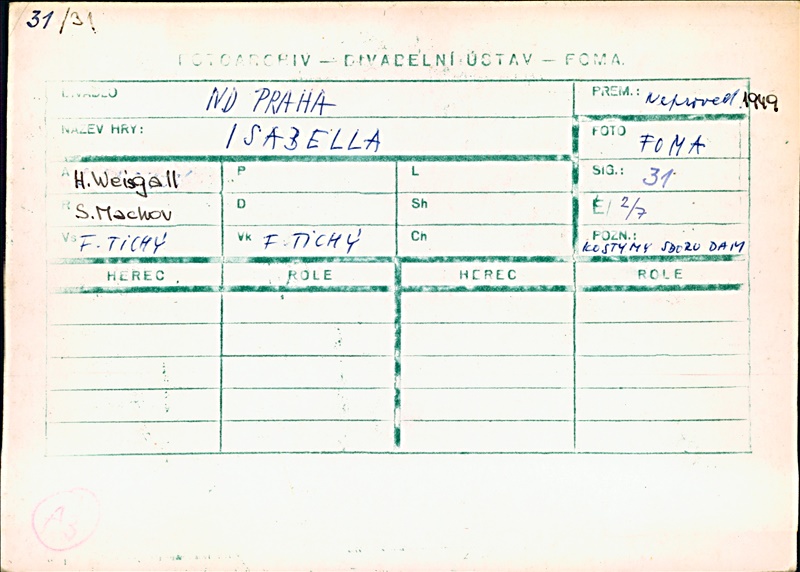 31/31
FOTOARCHIV — DIVADELNÍ ÚSTAV — FOMA.
DIVADLO ND PRAHA PREM.: Neproved. 1949
NÁZEV HRY: ISABELLA FOTO FOMA
A H. Weisgall P L SIG.: 31
R S. Machov D Sh Č/ 2/7
Vs F. TICHÝ Vk F. TICHÝ Ch POZN.: KOSTYMY SBORU DAM
HEREC ROLE HEREC ROLE
A5